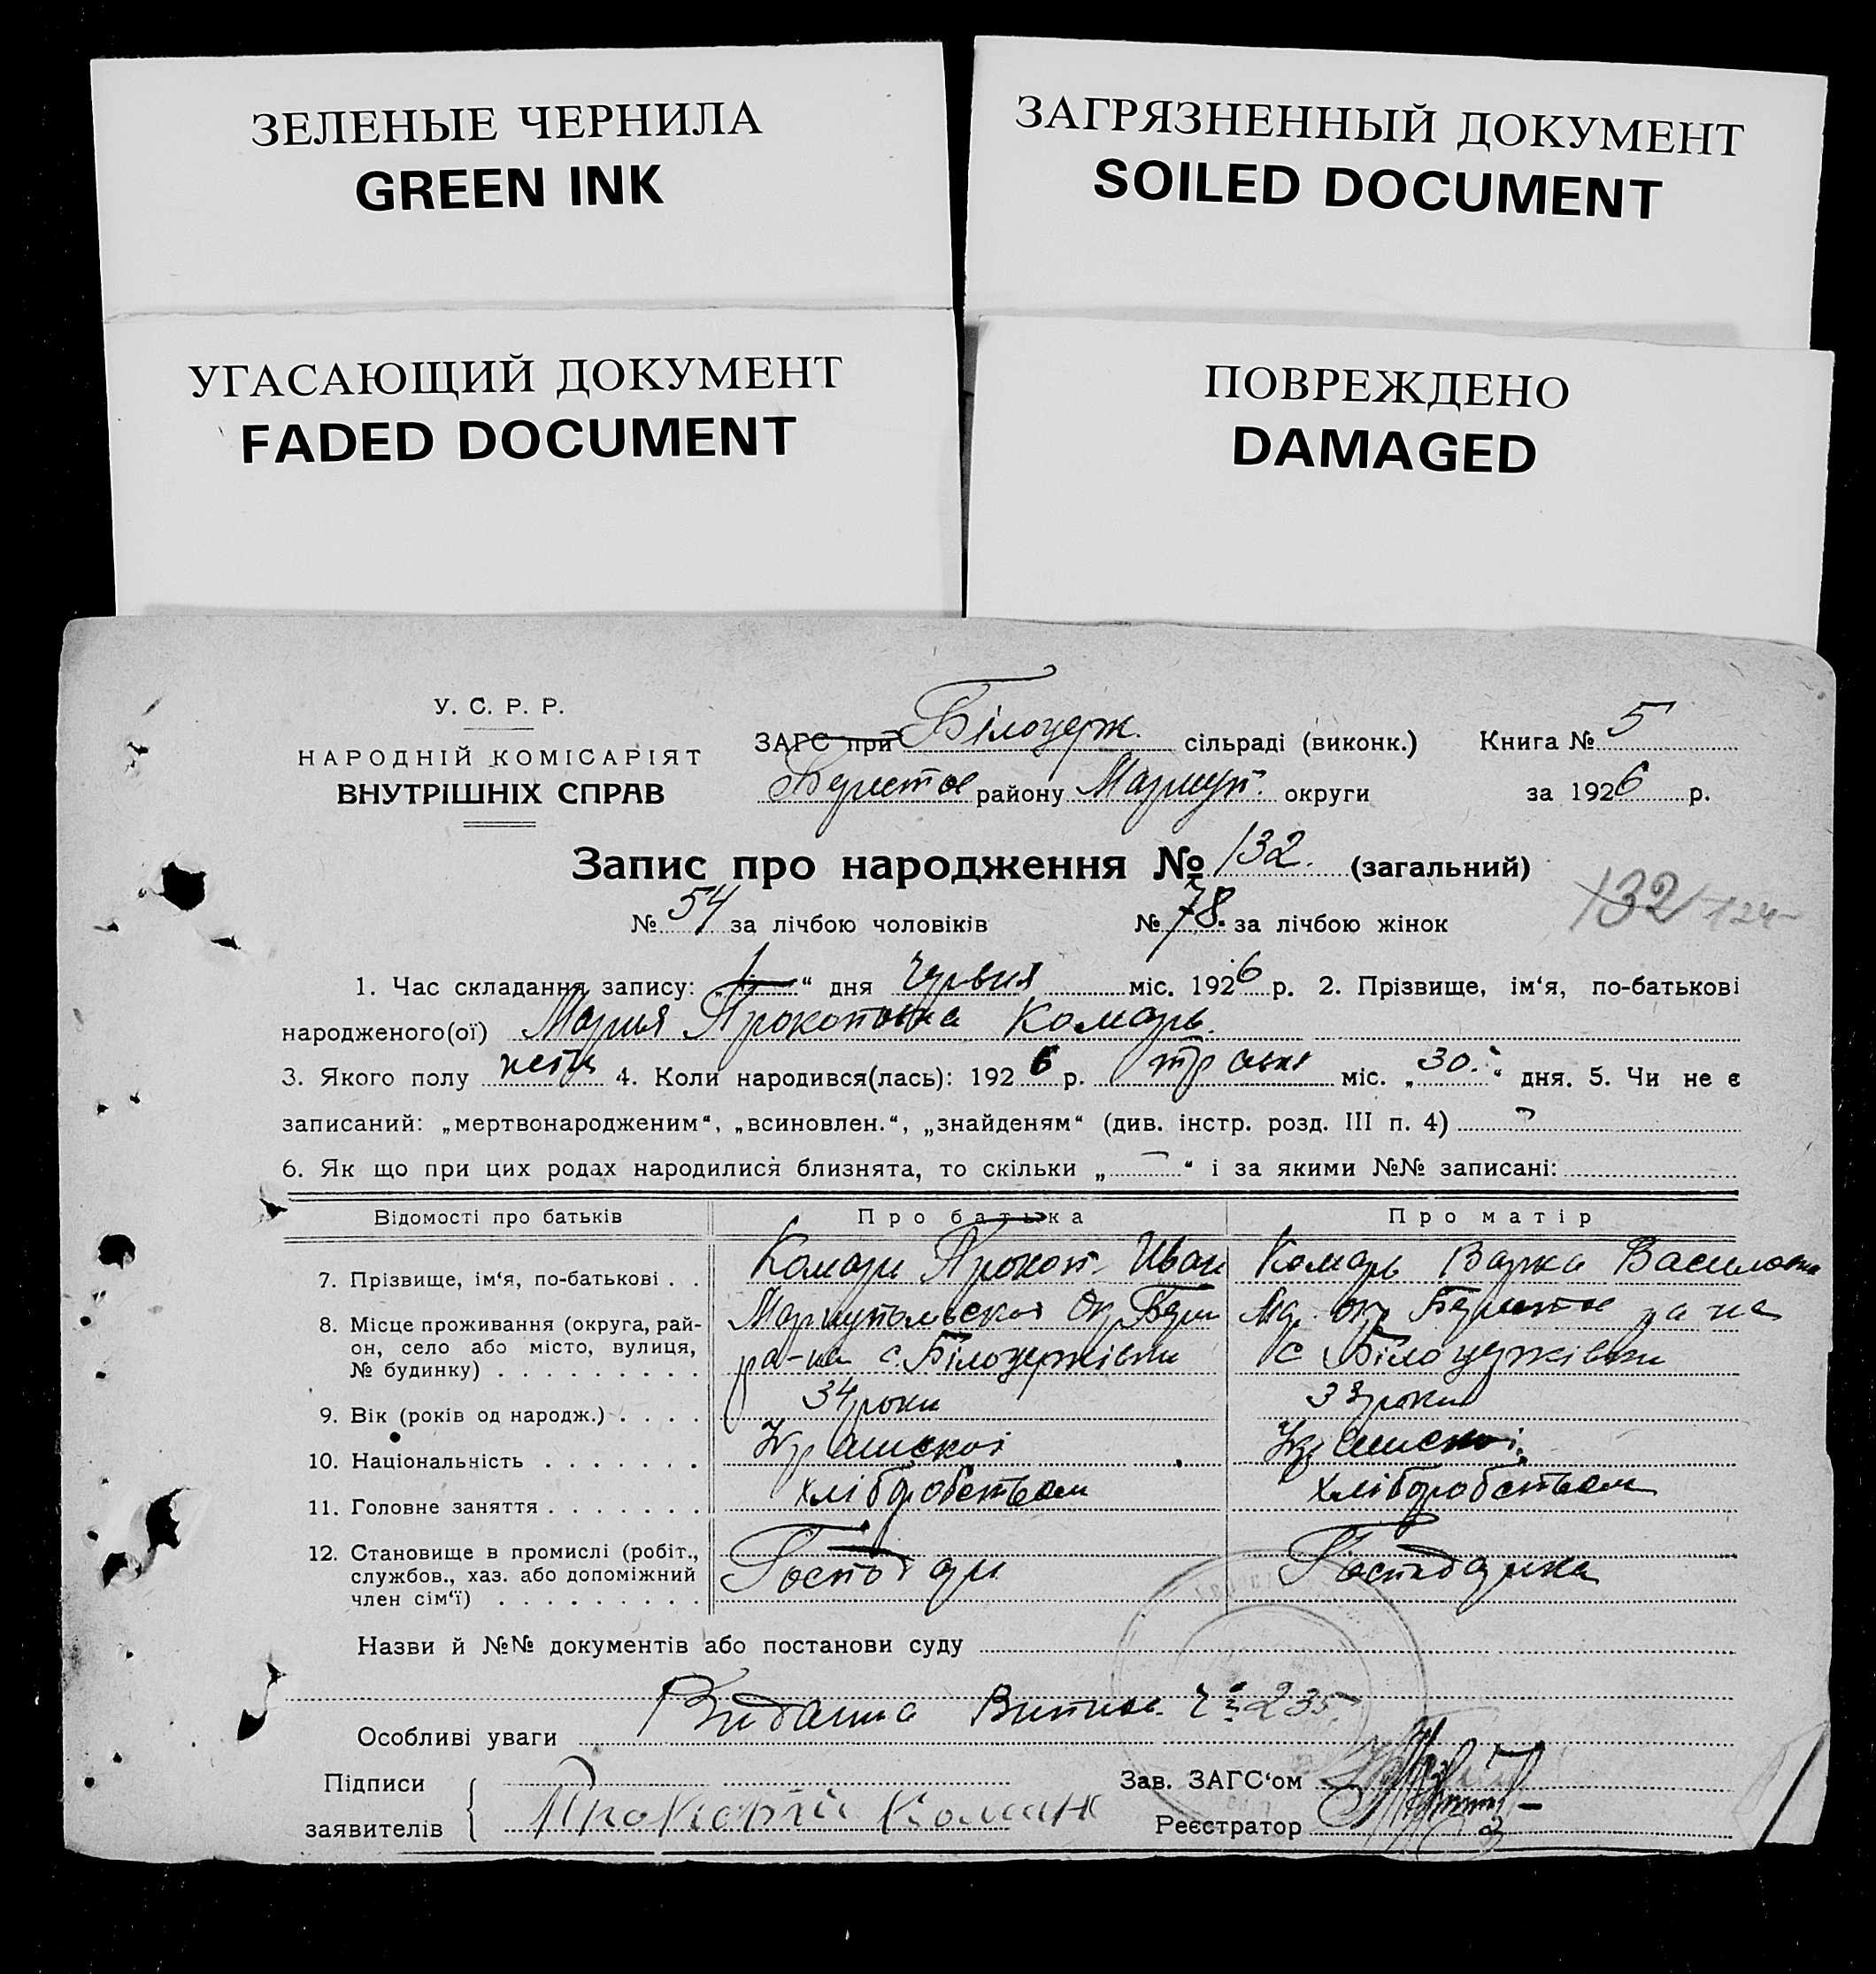 ЗЕЛЕНЫЕ ЧЕРНИЛА
GREEN INK
ЗАГРЯЗНЕННЫЙ ДОКУМЕНТ
SOILED DOCUMENT
УГАСАЮЩИЙ ДОКУМЕНТ
FADED DOCUMENT
ПОВРЕЖДЕНО
DAMAGED
У. С. Р. Р.
НАРОДНІЙ КОМІСАРІЯТ
ВНУТРІШНІХ СПРАВ
ЗАГС при Білоцерк. сільраді (виконк.) Книга № 5
району Мариуп. округи за 1926 р.
Запис про народження № 132. (загальний)
132 124
№ 54 за лічбою чоловіків № 78. за лічбою жінок
1. Час складання запису: „1“ дня червня міс. 1926 р. 2. Прізвище, ім‘я, по-батькові
народженого(ої) Мария Прокоповна Комарь.
3. Якого полу 4. Коли народився(лась): 1926 р. міс. „30.“ дня. 5. Чи не є
записаний: „мертвонародженим“, „всиновлен.“, „знайденям“ (див. інстр. розд. III п. 4)
6. Як що при цих родах народилися близнята, то скільки „—“ і за якими №№ записані:
Відомості про батьків Про батька Про матір
7. Прізвище, ім‘я, по-батькові . . Комарь Прокоп. Иван Комарь Варка Василовна
8. Місце проживання (округа, рай-
он, село або місто, вулиця,
№ будинку) . . . . . . . . . с. Білоцерківки с Білоцерківки
9. Вік (років од народж.) . . . . 34 роки 33 роки
10. Національність . . . . . . .
11. Головне заняття . . . . . . . хліборобством хліборобством
12. Становище в промислі (робіт.,
службов., хаз. або допоміжний
член сім‘ї) . . . . . . . . . Господарь Господарка
Назви й №№ документів або постанови суду
Особливі уваги Видана Випис. 235
Підписи
заявителів Прокофій Комар
Зав. ЗАГС‘ом
Реєстратор